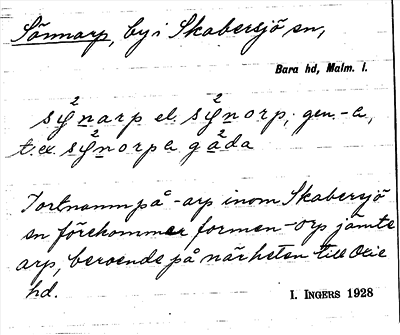 Sönnarp, by i Skabersjö sn,
Bara hd, Malm. l.
sy²narp el. sy²norp; gen. -a,
t. ex. sy²norpa ga²da
I ortnamn på -arp inom Skabersjö
sn förekommer formen -orp jämte
arp, beroende på närheten till Oxie
hd.
I. INGERS 1928